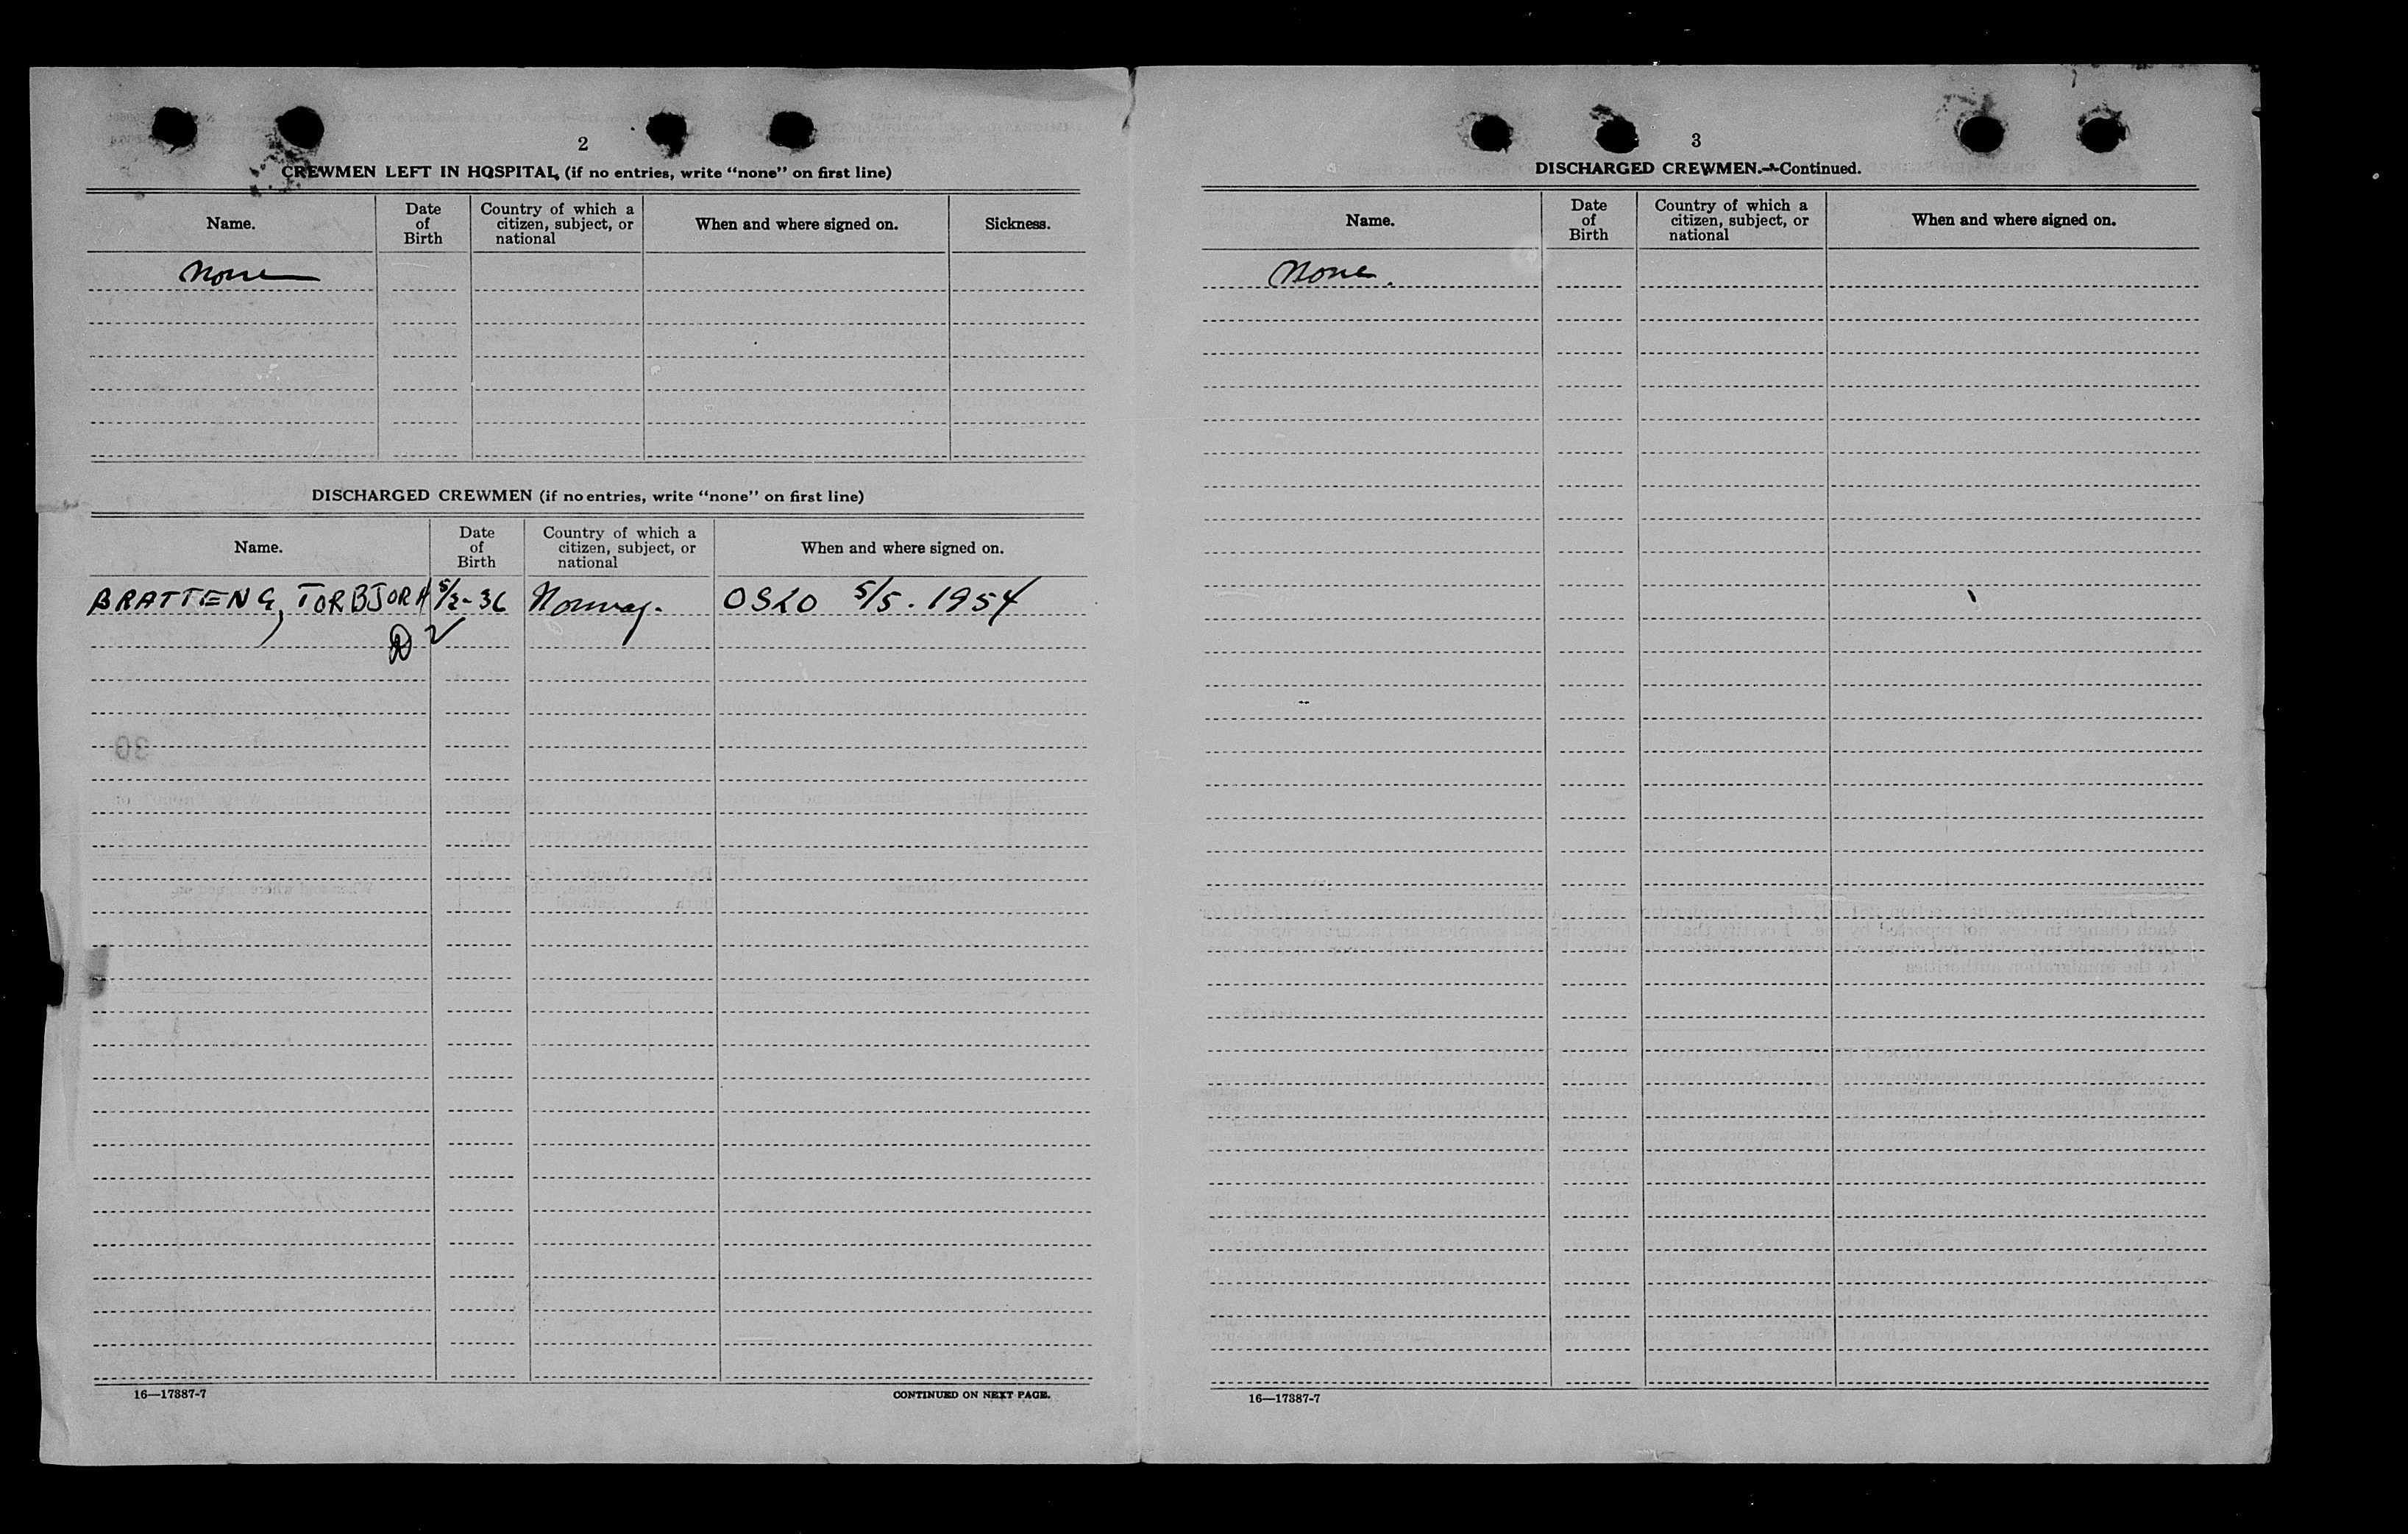 2
CREWMEN LEFT IN HOSPITAL (if no entries, write “none” on first line)
Name.
Date of Birth
Country of which a citizen, subject, or national
When and where signed on.
Sickness.
None
DISCHARGED CREWMEN (if no entries, write “none” on first line)
Name.
Date of Birth
Country of which a citizen, subject, or national
When and where signed on.
BRATTENG, TORBJORN 5/2-36 Norway. OSLO 5/5. 1954
30
16—17387-7
CONTINUED ON NEXT PAGE.
3
DISCHARGED CREWMEN.—Continued.
Name.
Date of Birth
Country of which a citizen, subject, or national
When and where signed on.
None.
16—17387-7